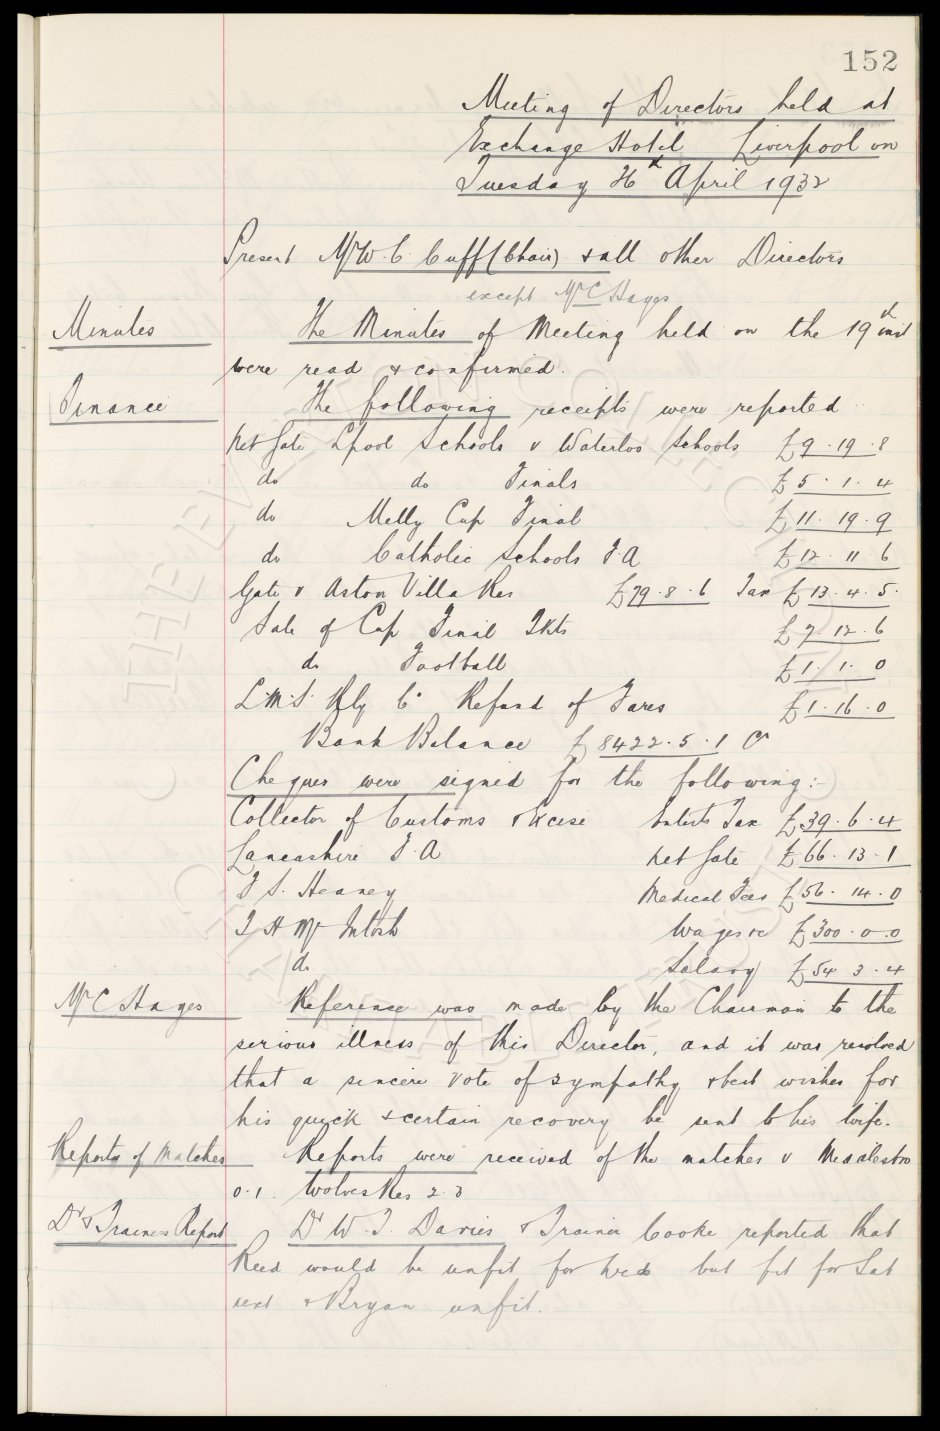 152
Meeting of Directors held at
Exchange Hotel Liverpool on
Tuesday 26th April 1932
Present Mr W. C. Cuff (Chair) & all other Directors
except Mr C Hayes
Minutes The Minutes of Meeting held on the 19th inst
were read & confirmed.
Finance The following receipts were reported
Net Gate Lpool Schools v Waterloo Schools £9.19.8
do do Finals £5.1.4
do Melly Cup Final £11.19.9
do Catholic Schools F.A £12.11.6
Gate v Aston Villa Res £79.8.6 Tax £13.4.5.
Sale of Cup Final Tkts £7.12.6
do Football £1.1.0
L.M.S. Rly Co Refund of Fares £1.16.0
Bank Balance £8422.5.1 Cr
Cheques were signed for the following:-
Collector of Customs & Excise Entert Tax £39.6.4
Lancashire F.A Net Gate £66.13.1
T S. Heaney Medical Fees £56.14.0
T H Mc Intosh Wages &c £300.0.0
do Salary £54 3.4
Mr C Hayes Reference was made by the Chairman to the
serious illness of this Director, and it was resolved
that a sincere vote of sympathy & best wishes for
his quick & certain recovery be sent to his wife.
Reports of Matches Reports were received of the matches v Middlesbro
0.1. Wolves Res 2.3
Dr & Trainers Report Dr W. T. Davies & Trainer Cooke reported that
Reed would be unfit for Weds but fit for Sat
next & Bryan unfit.
THE EVERTON COLLECTION